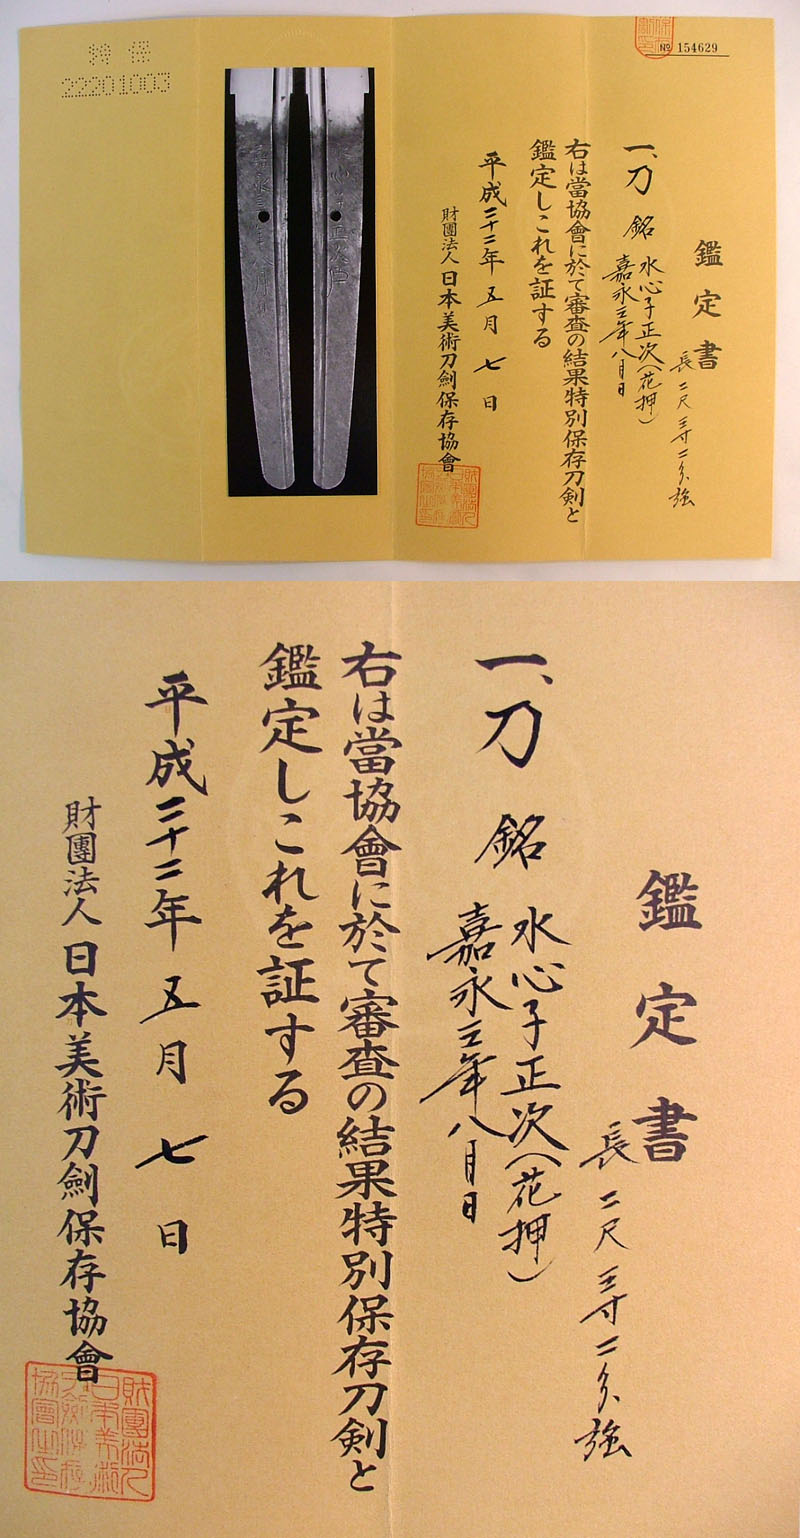 特保
22201003
No 154629
鑑定書
長二尺三寸二分強
一、刀 銘 水心子正次(花押)
嘉永三年八月日
右は當協會に於て審査の結果特別保存刀剣と
鑑定しこれを証する
平成二十二年五月七日
財團法人日本美術刀劍保存協會
鑑定書
長二尺三寸二分強
一、刀 銘 水心子正次(花押)
嘉永三年八月日
右は當協會に於て審査の結果特別保存刀剣と
鑑定しこれを証する
平成二十二年五月七日
財團法人日本美術刀劍保存協會
財團法人
日本美術
刀劍保存
協會之印